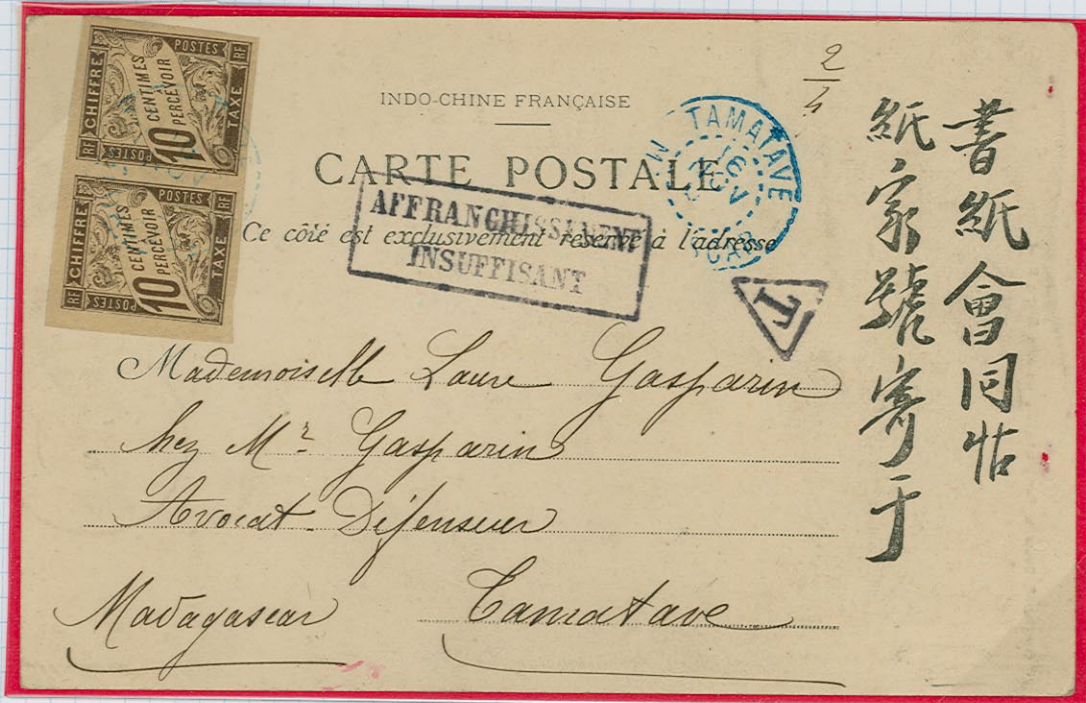 CHIFFRE
POSTES
RF
10 CENTIMES
PERCEVOIR
TAXE
RF
POSTES
CHIFFRE
POSTES
RF
10 CENTIMES
PERCEVOIR
TAXE
RF
POSTES
2/4
INDO-CHINE FRANÇAISE
CARTE POSTALE
Ce côté est exclusivement réservé à l'adresse
TAMATAVE
16
NOV
AFFRANCHISSEMENT
INSUFFISANT
T
Mademoiselle Laure Gasparin
chez Mr Gasparin
Avocat-Défenseur
Madagascar Tamatave
書紙會同帖
紙家號寄于